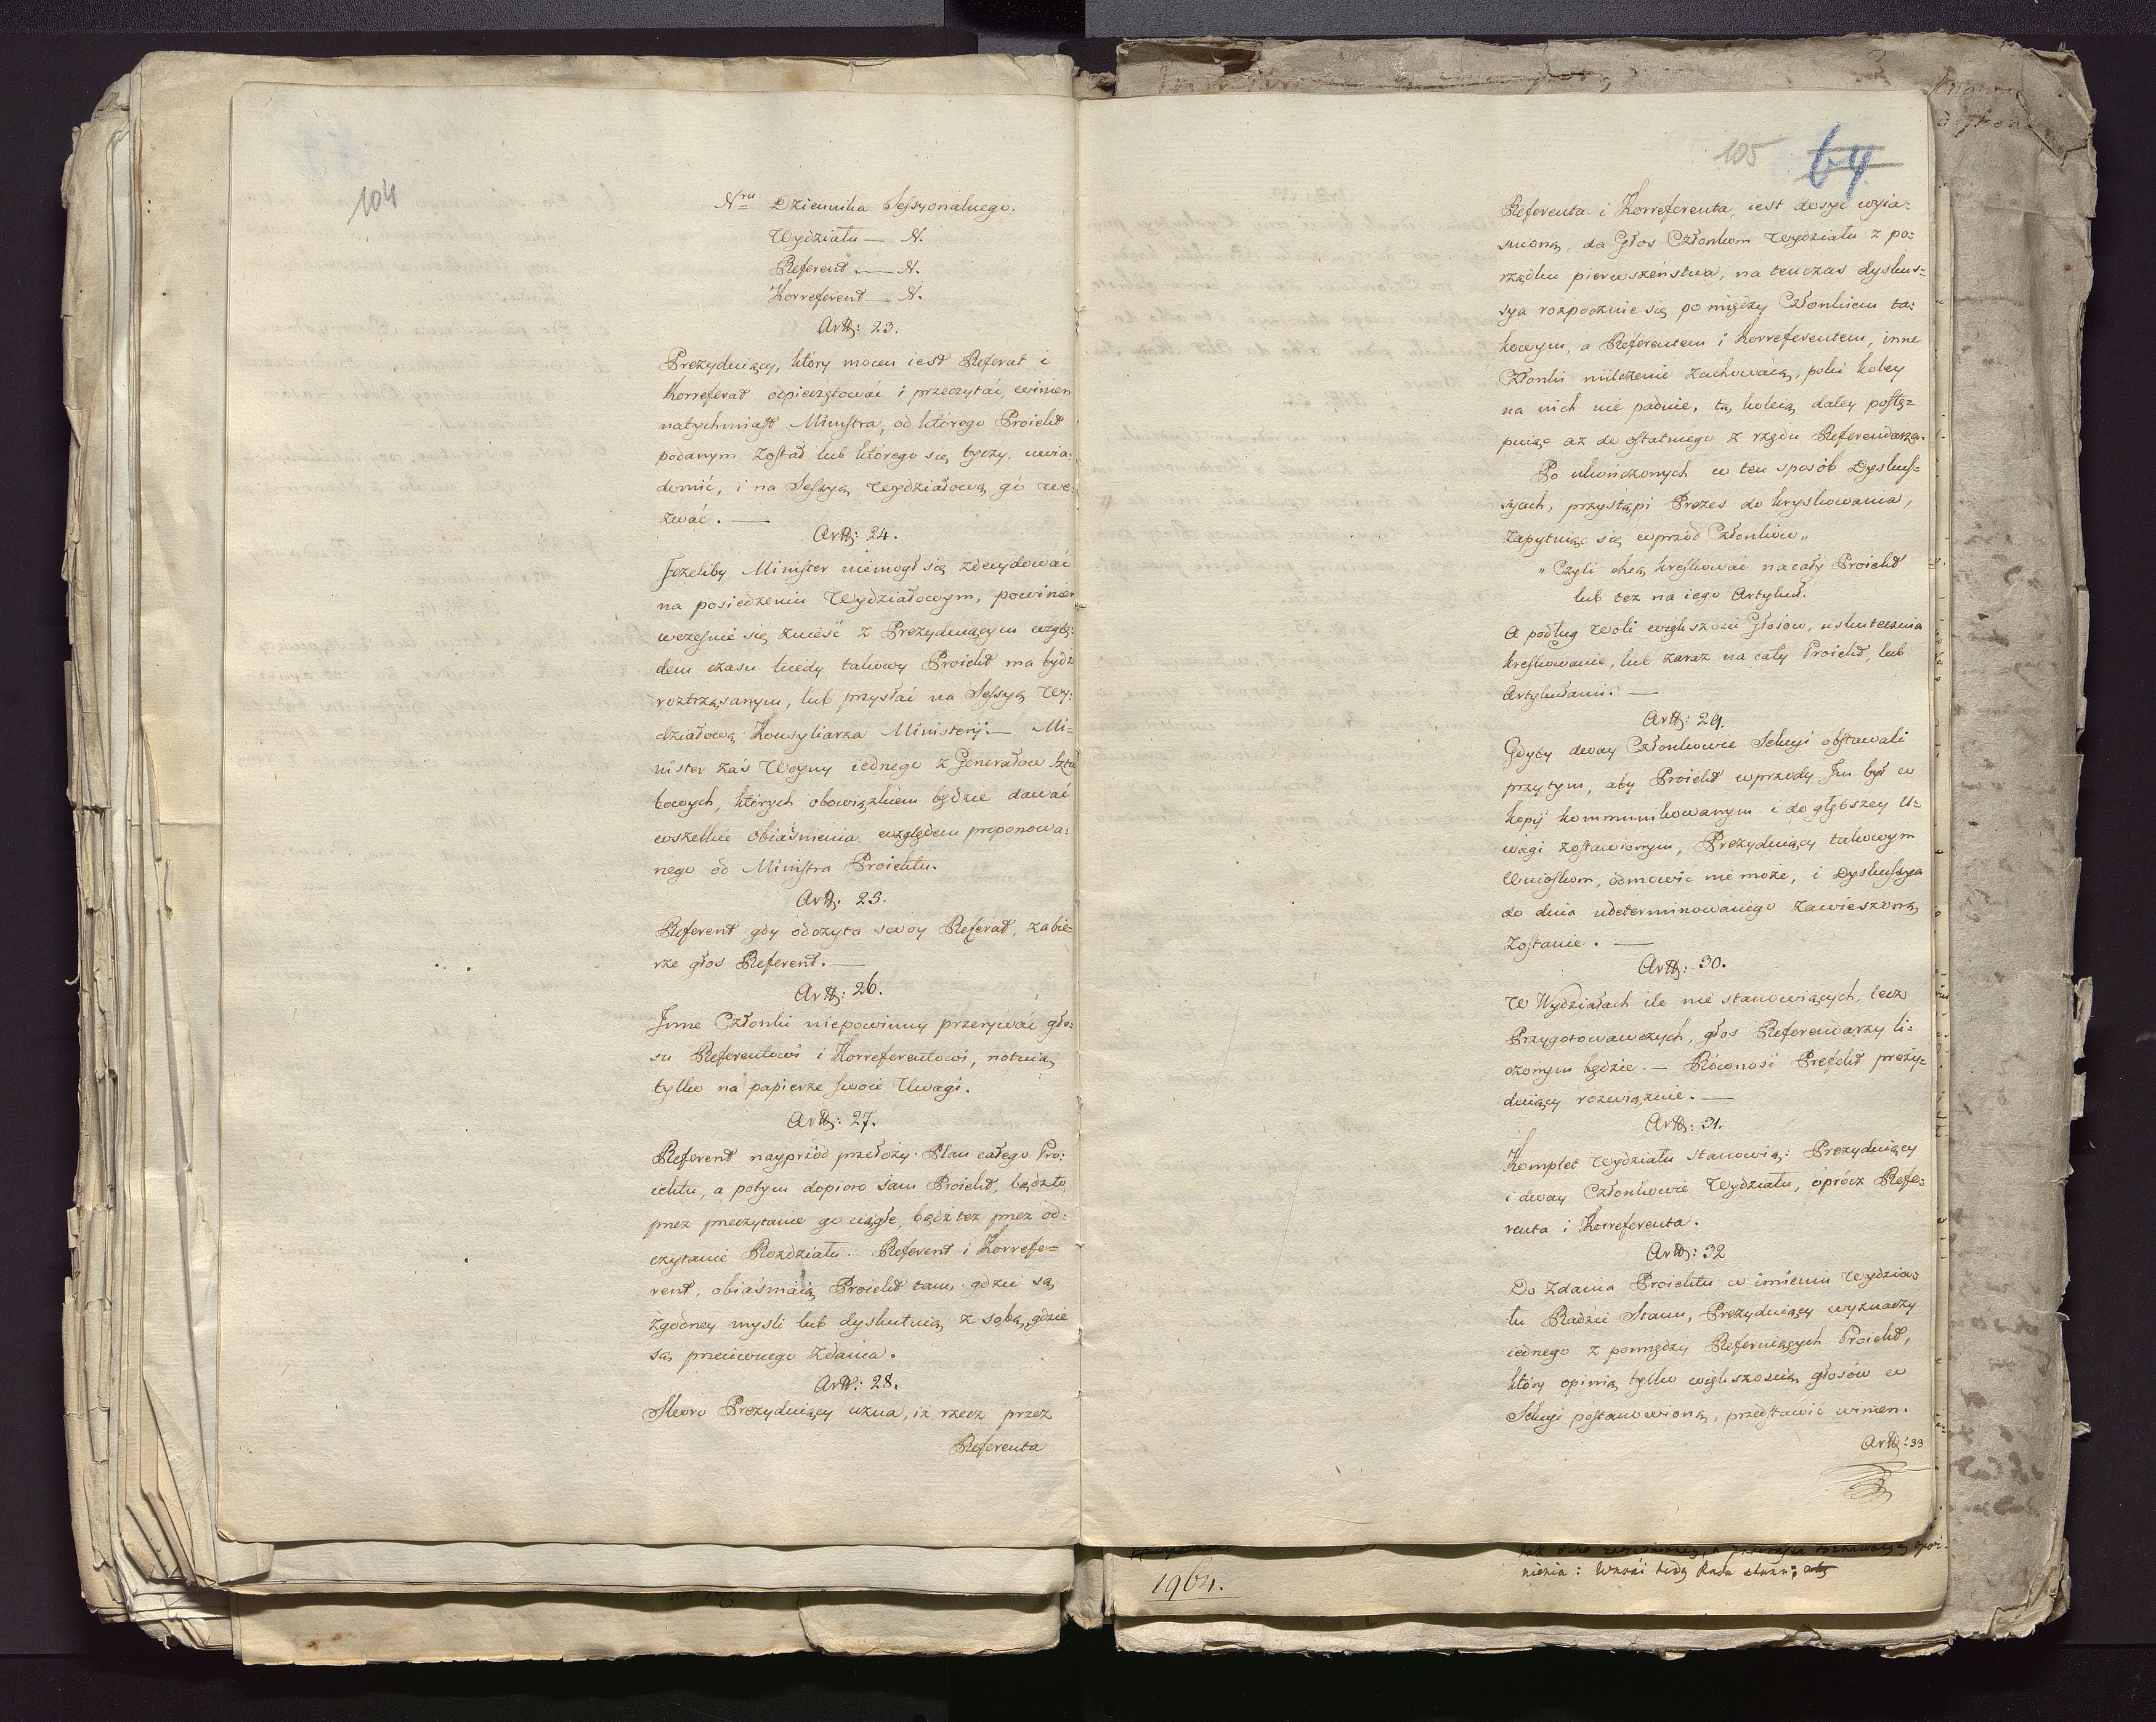 104
Nru Dziennika Sessyonalnego.
Wydziału — N.
Referent — N.
Korreferent — N.
Artt: 23.
Prezyduiący, który mocen iest Referat i
Korreferat odpieczętować i przeczytać, winien
natychmiast Ministra, od którego Proiekt
podanym został lub którego się tyczy, uwia:
domić, i na Sessyą Wydziałową go we:
zwać. —
Artt: 24.
Jeżeliby Minister niemogł się zdecydować
na posiedzeniu Wydziałowym, powinien
wcześnie się znieść z Prezyduiącym wzglę:
dem czasu kiedy takowy Proiekt ma bydź
roztrząsanym, lub przysłać na Sessyą Wy:
działową Konsyliarza Ministerij — Mi=
nister zaś Woyny iednego z Generałow Szta
bowych, których obowiązkiem będzie dawać
wszelkie obiaśnienia względem proponowa:
nego od Ministra Proiektu.
Artt. 25.
Referent gdy odczyta swoy Referat, zabie=
rze głos Referent. —
Artt: 26.
Inne Członki niepowinny przerywać gło:
su Referentowi i Korreferentowi, notuią
tylko na papierze swoie Uwagi.
Artt: 27.
Referent nayprzód przełoży Plan całego Pro:
iektu, a potym dopioro sam Proiekt, bądz to
przez przeczytanie go ciągłe, bądz tez przez od:
czytanie Rozdziału. Referent i Korrefe=
rent, obiaśniaią Proiekt tam gdzie są
zgodney mysli lub dyskutuią z sobą, gdzie
są przeciwnego zdania.
Artt: 28.
Skoro Prezyduiący uzna, iż rzecz przez
Referenta
105 64
Referenta i Korreferenta, iest dosyć wyia:
snioną, da Głos Członkom Wydziału z po:
rządku pierwszeństwa, na tenczas dyskus=
sya rozpocznie się pomiędzy Członkiem ta:
kowym, a Referentem i Korreferentem, inne
Członki milczenie zachowaią, poki koley
na nich nie padnie, tą koleią daley postę=
puiąc az do ostatniego z rzędu Referendarza.
Po ukończonych w ten sposób Dyskus=
syach, przystąpi Prezes do kryskowania,
zapytuiąc się wprzód Członków„
„ Czyli chcą kreskować na cały Proiekt
lub tez na iego Artykuł.
A podług woli większosci Głosow, uskutecznia
kreskowanie, lub zaraz na cały Proiekt, lub
Artykułami. —
Artt: 29.
Gdyby dway Członkowie Sekcyi obstawali
przy tym, aby Proiekt wprzody Im był w
kopij kommunikowanym i do głębszey U=
wagi zostawionym, Prezyduiący takowym
Wnioskom, odmowić nie może, i Dyskussya
do dnia udeterminowanego zawieszoną
zostanie. —
Artt: 30.
W Wydziałach ile nie stanowiących, lecz
Przygotowawczych, głos Referendarzy li:
czonym będzie. — Równość Prefekt prezy=
duiący rozwiąznie. —
Artt: 31.
Komplet Wydziału stanowią: Prezyduiący
i dway Członkowie Wydziału, oprócz Refe:
renta i Korreferenta.
Artt: 32
Do zdania Proiektu w imieniu Wydzia:
łu Radzie Stanu, Prezyduiący wyznaczy
iednego z pomiędzy Referuiących Proiekt,
który opinią tylko większoscią głosów w
Sekcyi postanowioną, przedstawić winien.
Artt: 33
1964.
nienia: Wnosi tedy Rada stanu;